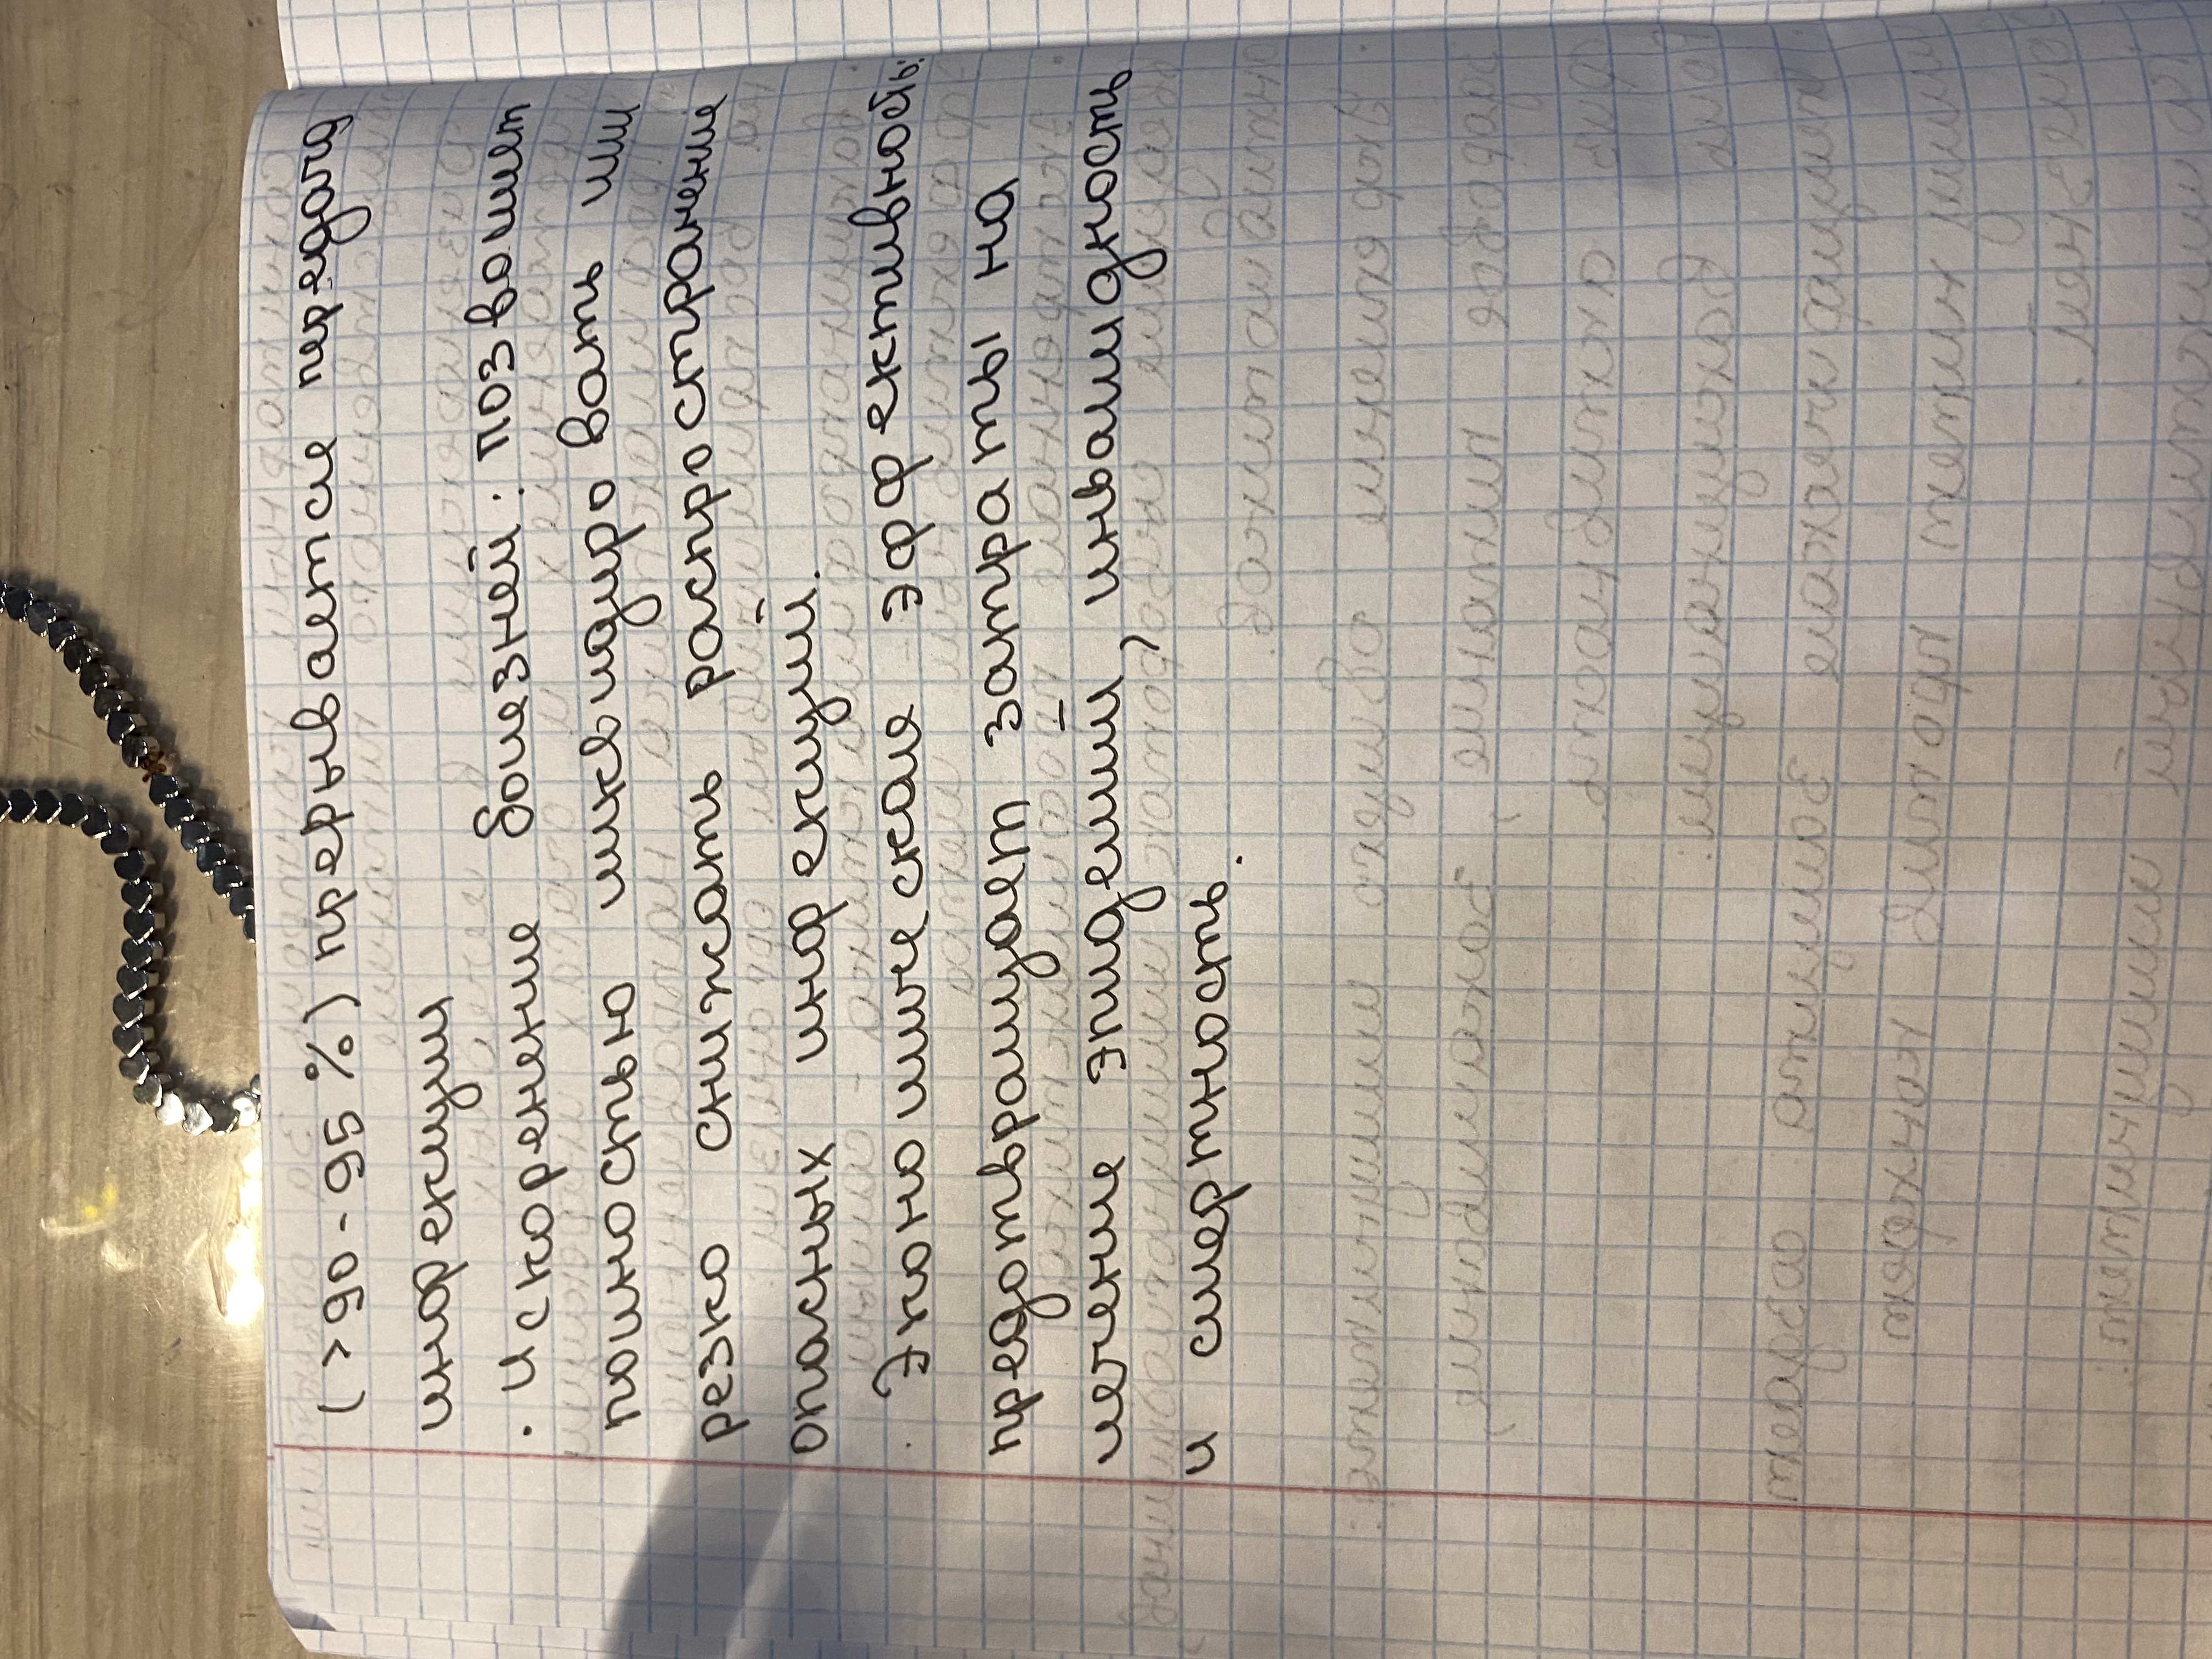 (>90-95%) прерывается передача
инфекции
· искоренение болезней: позволяет
полностью ликвидировать или
резко снижать распространение
опасных инфекций.
· Экономическая эффективность:
предотвращает затраты на
лечение эпидемий, инвалидность
и смертность.